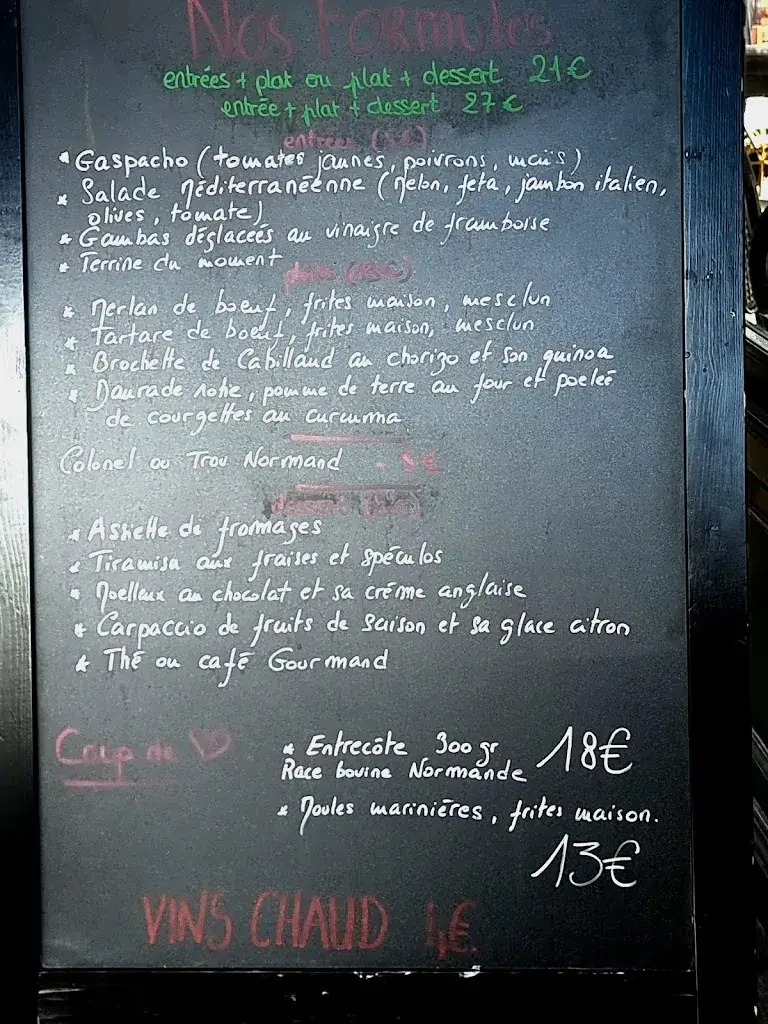 Nos Formules
entrées + plat ou plat + dessert 21€
entrée + plat + dessert 27€
entrées
* Gaspacho (tomates jaunes, poivrons, maïs)
* Salade Méditerranéenne (Melon, feta, jambon italien,
olives, tomate)
* Gambas déglaceés au vinaigre de framboise
* Terrine du moment
plats
* Merlan de boeuf, frites maison, mesclun
* Tartare de boeuf, frites maison, mesclun
* Brochette de Cabillaud au chorizo et son quinoa
* Daurade rotie, pomme de terre au four et poeleé
de courgettes au curcuma
Colonel ou Trou Normand - 5€
dessert
* Assiette de fromages
* Tiramisu aux fraises et spéculos
* Moelleux au chocolat et sa crème anglaise
* Carpaccio de fruits de saison et sa glace citron
* Thé ou café Gourmand
Coup de
* Entrecôte 300 gr 18€
Race bovine Normande
* Moules marinières, frites maison.
13€
VINS CHAUD 4€